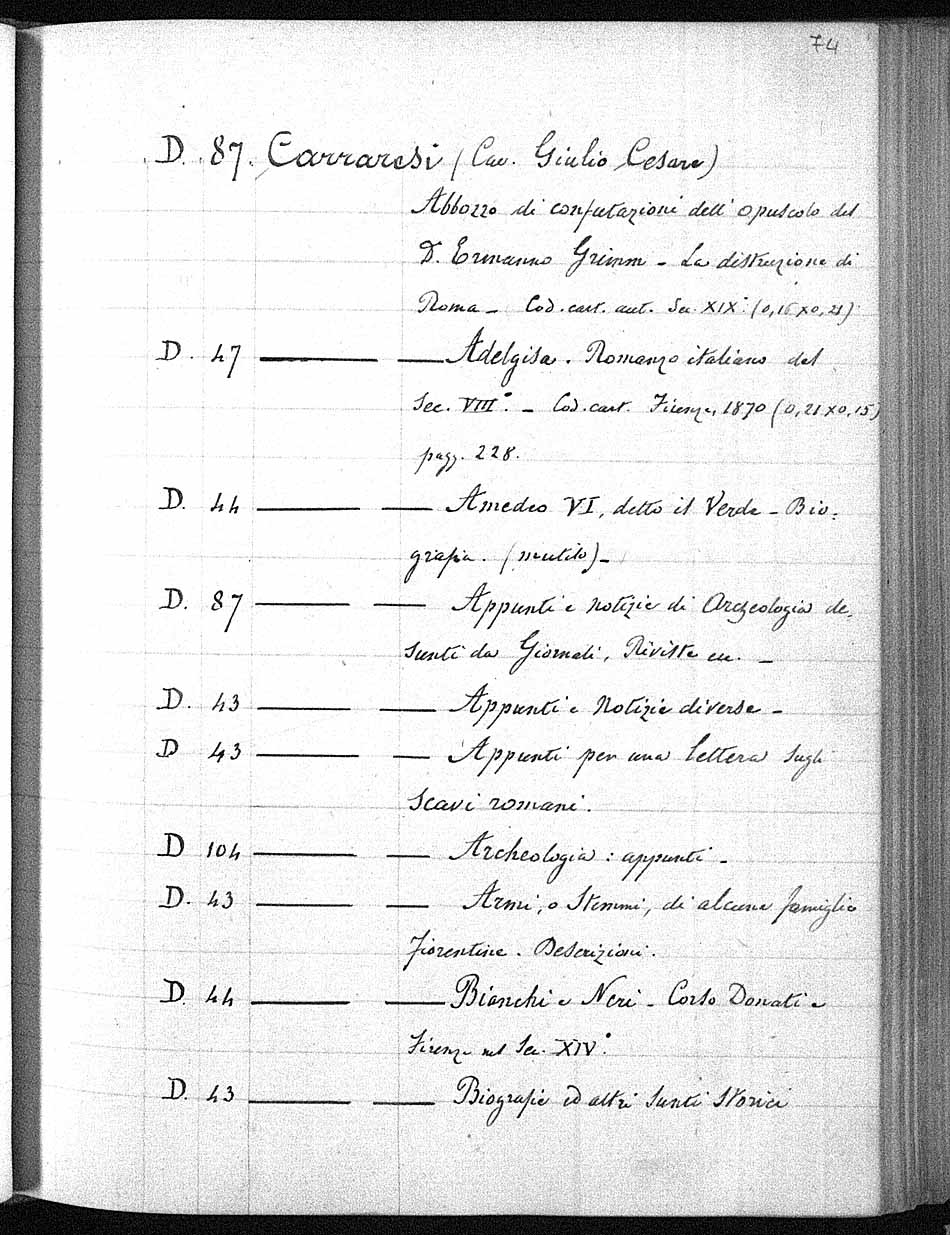 74
D. 87. Carraresi (Cav. Giulio Cesare)
Abbozzo di confutazioni dell' opuscolo del
D. Ermanno Grimm - La distruzione di
Roma - Cod. cart. aut. Sec. XIX.° (0,15 x 0,21)
D. 47 ——— — Adelgisa. Romanzo italiano del
Sec. VIII.° - Cod. cart. Firenze, 1870 (0,21 x 0,15)
pagg. 228.
D. 44 ——— — Amedeo VI, detto il Verde - Bio=
grafia. (mutilo) -
D. 87 ——— — Appunti e notizie di Archeologia de=
sunti da Giornali, Riviste ecc. -
D. 43 ——— — Appunti e Notizie diverse -
D 43 ——— — Appunti per una lettera sugli
Scavi romani.
D 104 ——— — Archeologia : appunti -
D. 43 ——— — Armi, o Stemmi, di alcune famiglie
Fiorentine. Descrizioni.
D. 44 ——— — Bianchi e Neri - Corso Donati e
Firenze nel Sec. XIV.°
D. 43 ——— — Biografie ed altri sunti storici